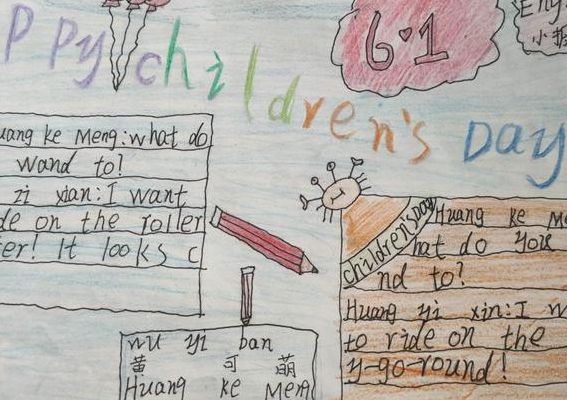 ppy children's Day
6·1
Eng
小报
uang ke Meng: what do
wand to?
zi xian: I want
de on the roller
er! It looks c
wu yi ban
黄 可 萌
Huang ke Meng
children's Day
Huang ke Me
hat do you
nd to?
Huang yi xin: I w
to ride on the
y-go-round!